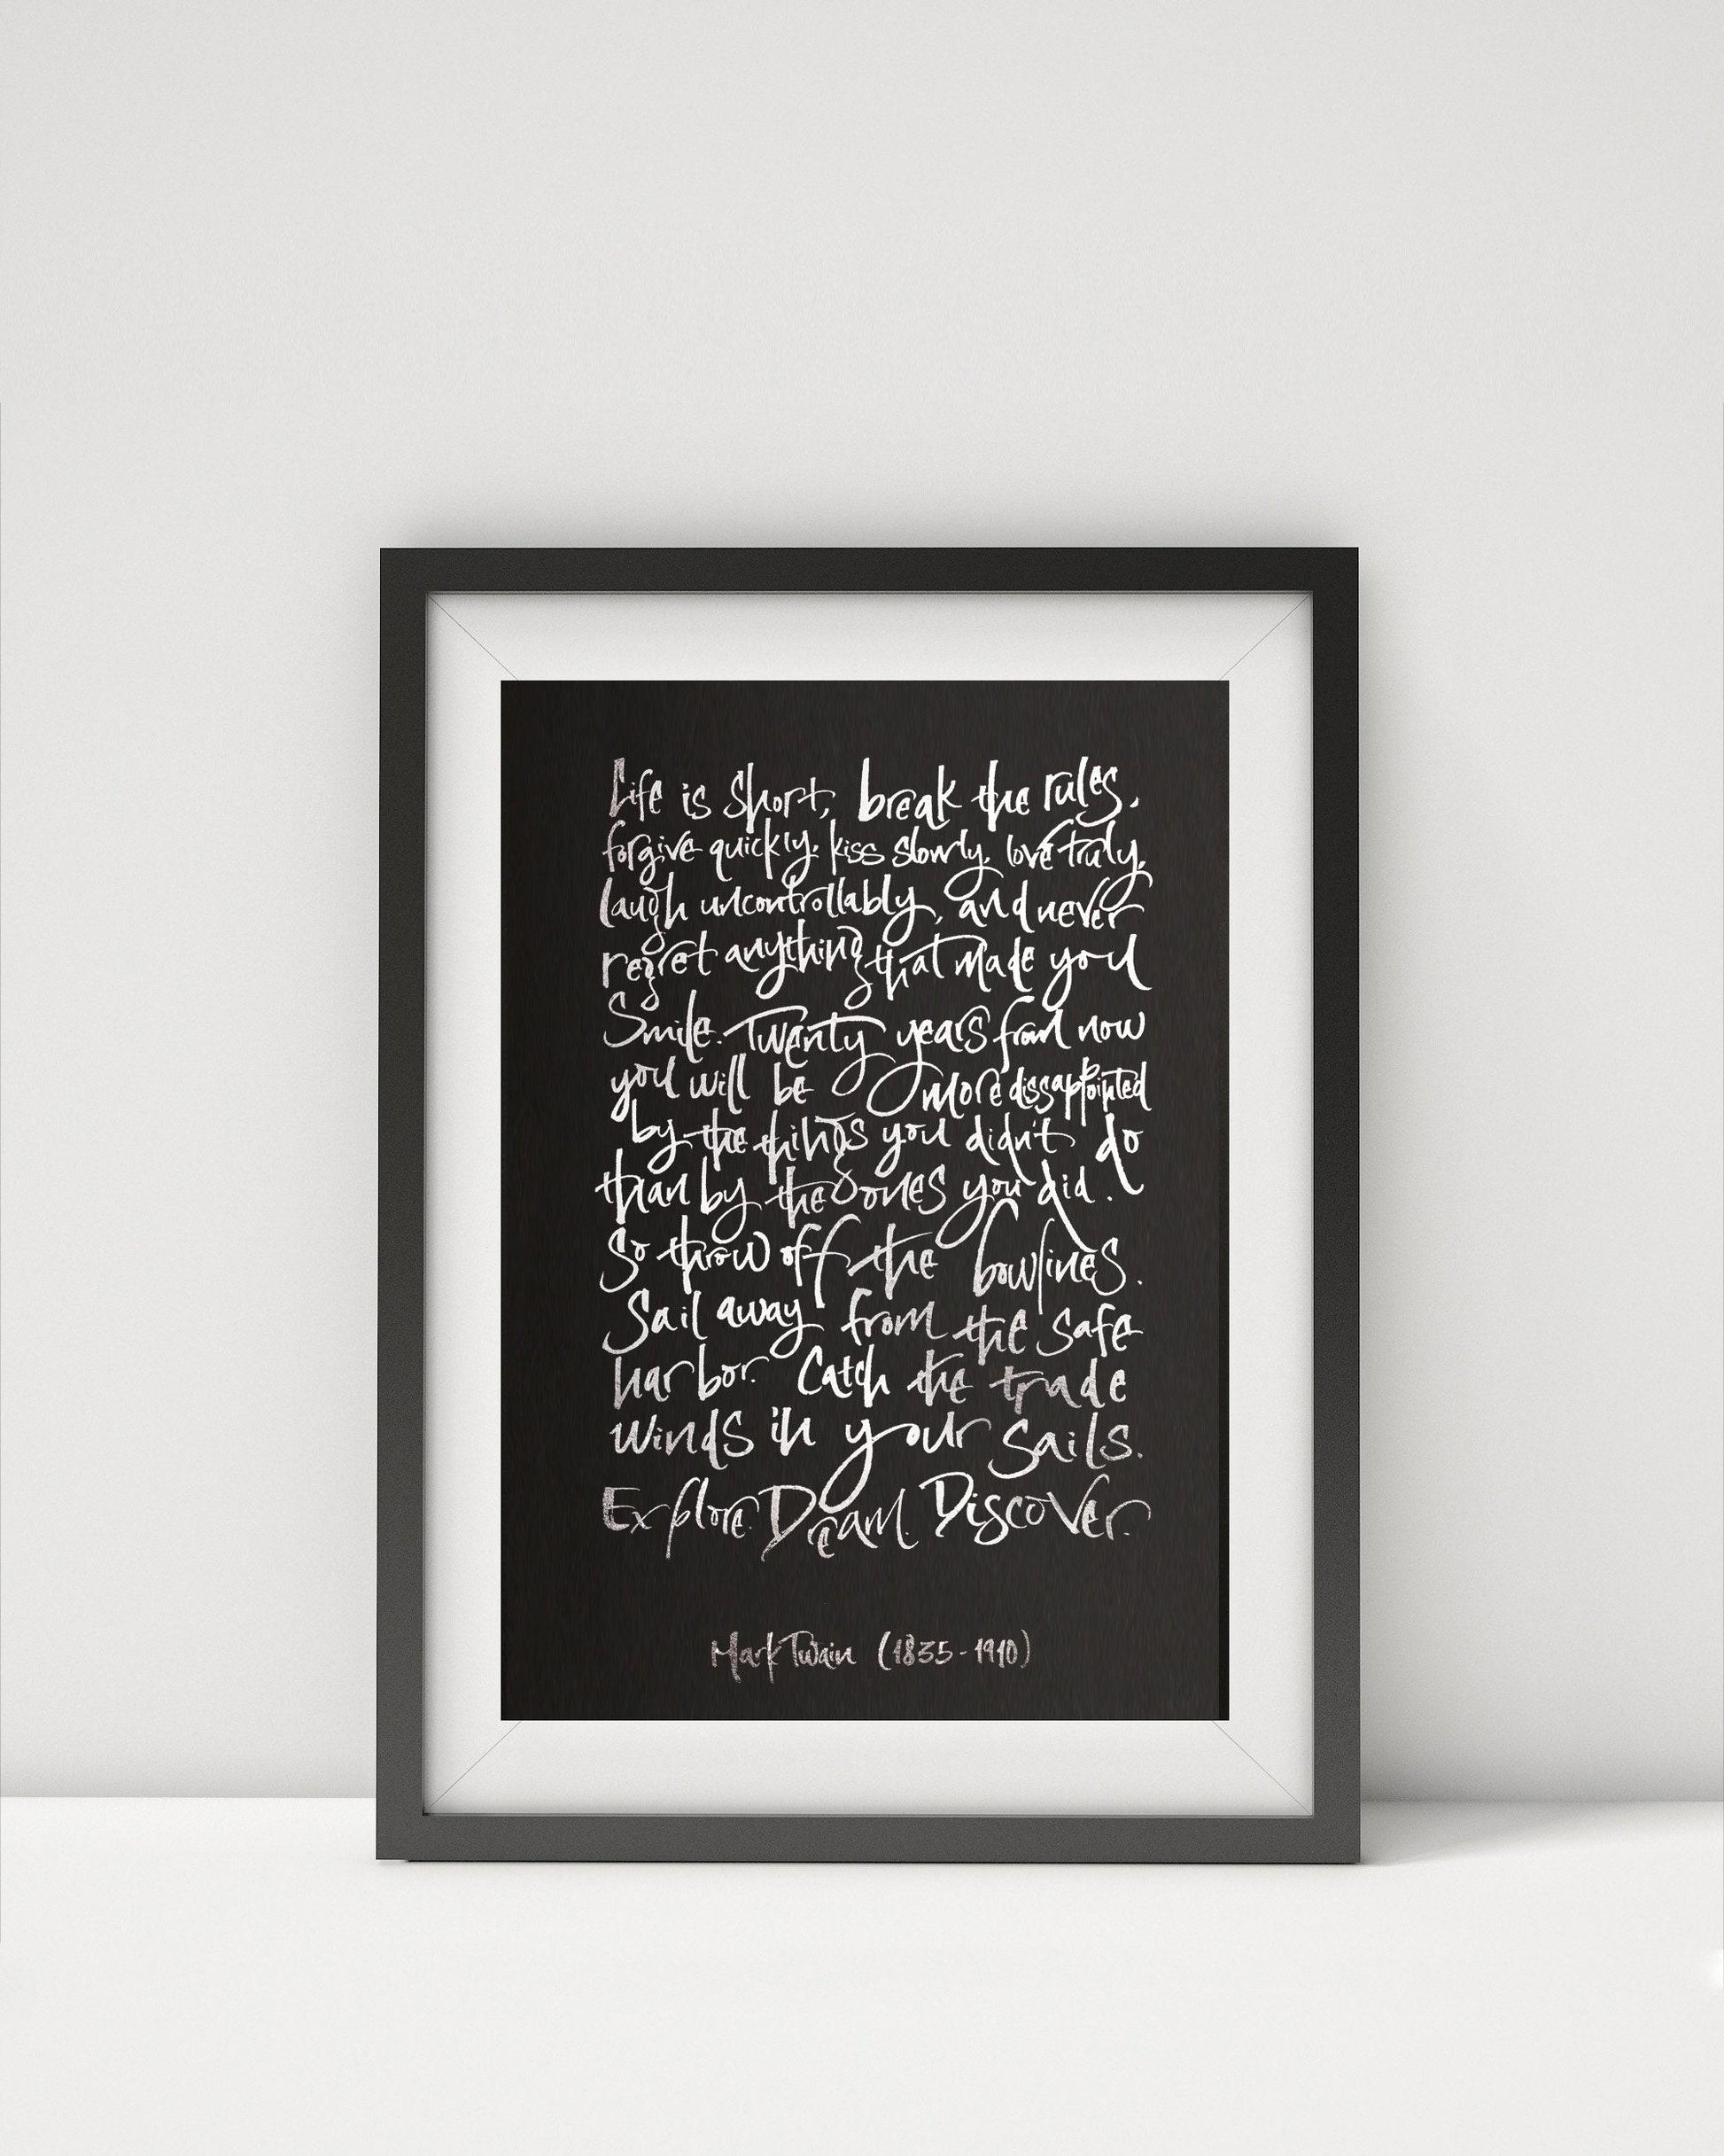 Life is short, break the rules,
forgive quickly, kiss slowly, love truly,
laugh uncontrollably, and never
regret anything that made you
Smile. Twenty years from now
you will be more dissappointed
by the things you didn't do
than by the ones you did.
So throw off the bowlines.
Sail away from the safe
harbor. Catch the trade
winds in your sails.
Explore. Dream. Discover.
Mark Twain (1835-1910)